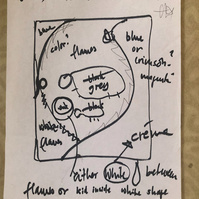 color
flames
blue
or
crimson-
magenta?
black
grey
pink
black
flames
crème
either white between
flames or kid white white shape